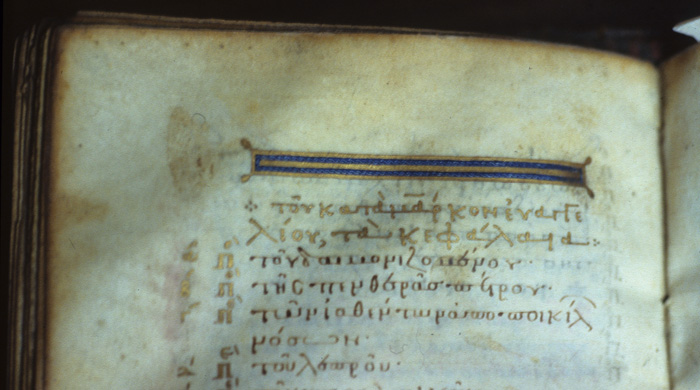 ⁘ τοῦ κατὰ μάρκον ἐυαγγε
λίου, τὰ κεφάλαια:
π τοῦ δαιμονιζομένου·
π τῆς πενθερᾶς πέτρου·
π τῶν ἰαθέντων ἀπὸ ποικίλ
νόσων·
π τοῦ λεπροῦ·